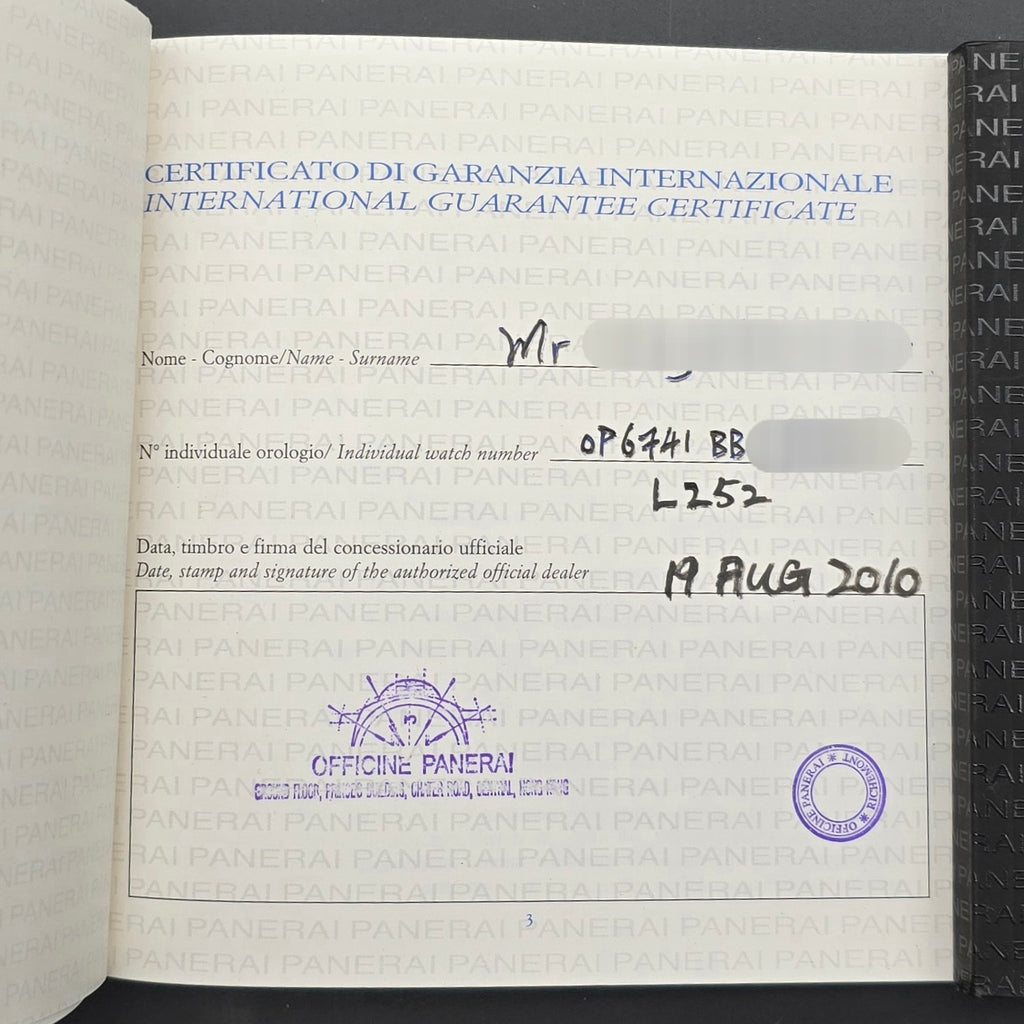 CERTIFICATO DI GARANZIA INTERNAZIONALE
INTERNATIONAL GUARANTEE CERTIFICATE
Nome - Cognome/Name - Surname Mr
N° individuale orologio/ Individual watch number OP6741 BB
L252
Data, timbro e firma del concessionario ufficiale
Date, stamp and signature of the authorized official dealer 19 AUG 2010
OFFICINE PANERAI
GROUND FLOOR, PRINCE'S BUILDING, CHATER ROAD, CENTRAL, HONG KONG
OFFICINE PANERAI * RICHEMONT *
3